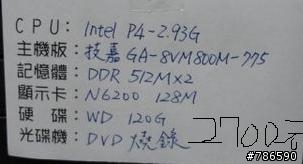 CPU: Intel P4-2.93G
主機版: 技嘉 GA-8VM800M-775
記憶體: DDR 512M×2
顯示卡: N6200 128M
硬 碟: WD 120G
光碟機: DVD 燒錄
2700元
#786590